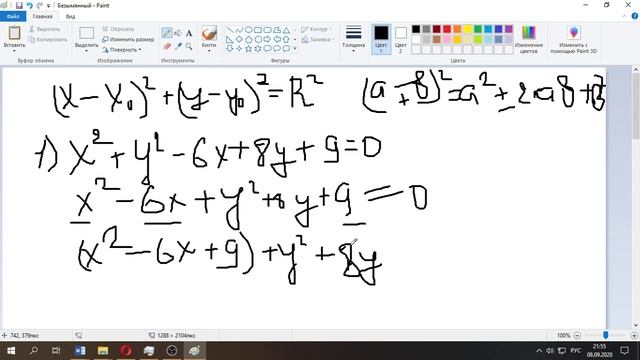 Безымянный - Paint
Файл Главная Вид
Вставить
Вырезать
Копировать
Буфер обмена
Выделить
Обрезать
Изменить размер
Повернуть
Изображение
Инструменты
Кисти
Контур
Заливка
Фигуры
Толщина
Цвет 1
Цвет 2
Цвета
Изменение цветов
Изменить с помощью Paint 3D
(x-x₀)²+(y-y₀)²=R²
1) x²+y²-6x+8y+9=0
x²-6x+y²+8y+9=0
(x²-6x+9)+y²+8y
742, 379пкс
1288 × 2104пкс
100%
РУС
21:55
08.09.2020